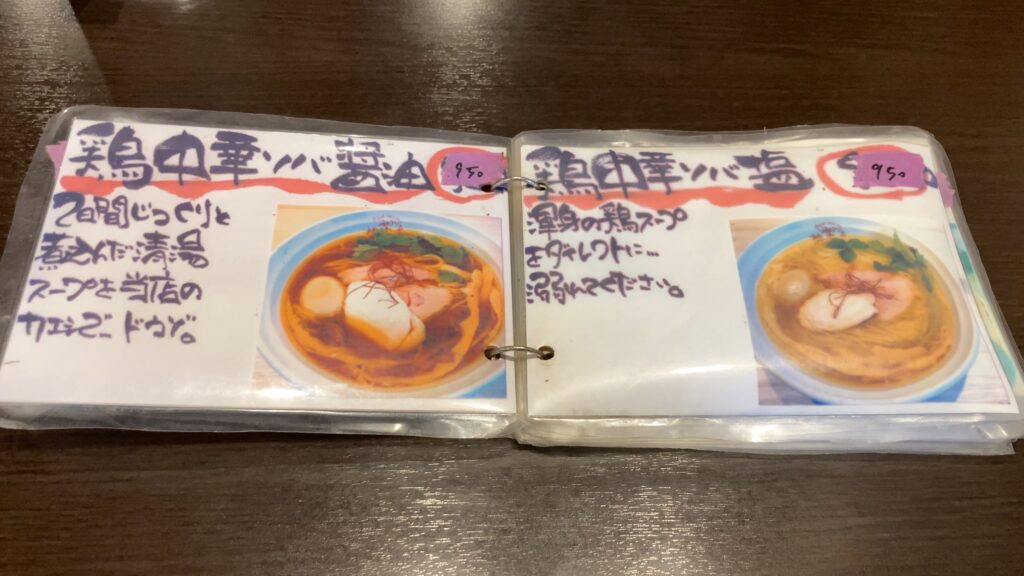 鶏中華ソバ醤油
950
2日間じっくりと
煮込んだ清湯
スープを当店の
カエシで… ドウゾ。
鶏中華ソバ塩
950
渾身の鶏スープ
をダイレクトに…
溺れてください。